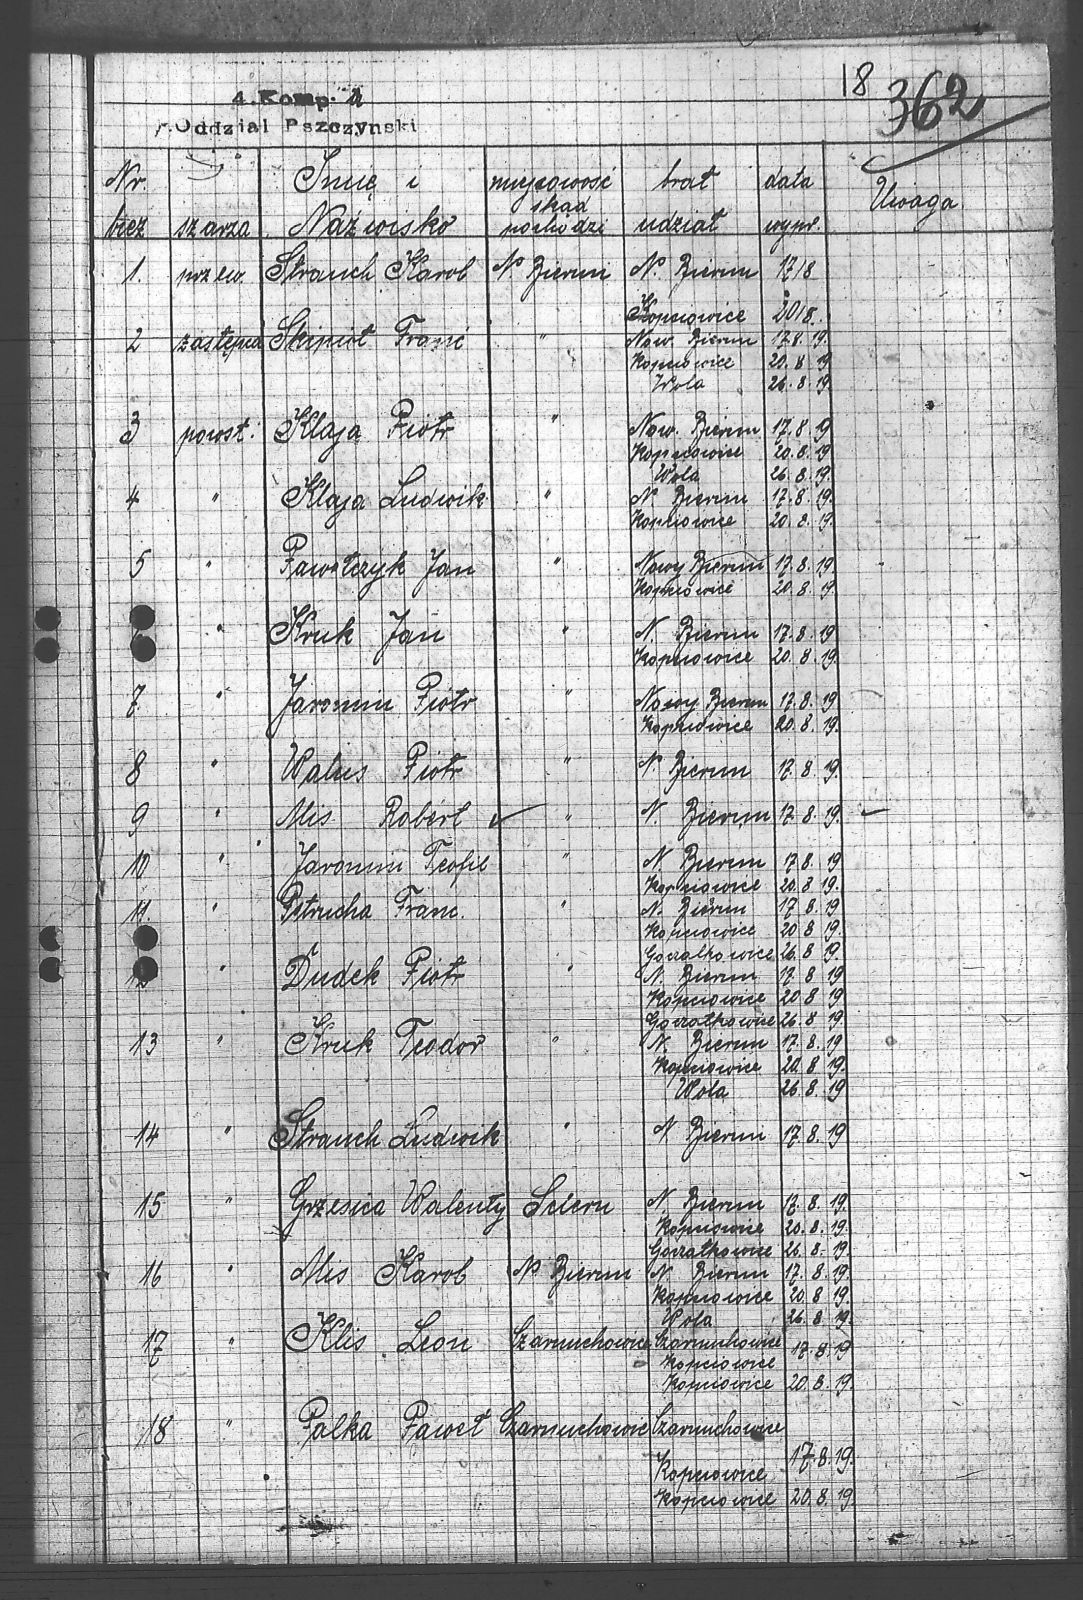 18 362
4. Komp. a
Oddział Pszczyński
Nr. Imię i miejscowość brał data Uwaga
skąd
bież szarża Nazwisko pochodzi udział wypr.
1. przew. Strauch Karol N Bieruń N. Bieruń 17/8
Kopciowice 20/8.
2 zastępca Skipioł Franc " Now. Bieruń 17.8.19.
Kopciowice 20.8.19
Wola 26.8.19.
3 powst. Klaja Piotr " Now. Bieruń 17.8.19
Kopciowice 20.8.19
Wola 26.8.19.
4 " Klaja Ludwik " N. Bieruń 17.8.19.
Kopciowice 20.8.19.
5 " Pawołczyk Jan " Nowy Bieruń 17.8.19.
Kopciowice 20.8.19.
" Kruk Jan " N. Bieruń 17.8.19
Kopciowice 20.8.19.
7. " Jaromin Piotr " Nowy Bieruń 17.8.19
Kopciowice 20.8.19.
8 " Walus Piotr " N. Bieruń 17.8.19.
9 " Mis Robert " N. Bieruń 17.8.19.
10 " Jaromin Teofil " N. Bieruń 17.8.19
Kopciowice 20.8.19.
11. " Petrucha Franc. " N. Bieruń 17.8.19
Kopciowice 20.8.19.
Goczałkowice 26.8.19.
12 " Dudek Piotr " N. Bieruń 17.8.19
Kopciowice 20.8.19.
Goczałkowice 26.8.19.
13 " Kruk Teodor " N. Bieruń 17.8.19
Kopciowice 20.8.19.
Wola 26.8.19
14 " Strauch Ludwik " N Bieruń 17.8.19
15 " Grzesica Walenty Ścierń N. Bieruń 17.8.19.
Kopciowice 20.8.19.
Goczałkowice 26.8.19.
16 " Mis Karol N Bieruń N. Bieruń 17.8.19.
Kopciowice 20.8.19.
Wola 26.8.19.
17 " Klis Leon Czarnuchowice Czarnuchowice
Kopciowice 17.8.19
Kopciowice 20.8.19.
18 " Palka Paweł Czarnuchowic Czarnuchowice
Kopciowice 17.8.19.
Kopciowice 20.8.19.